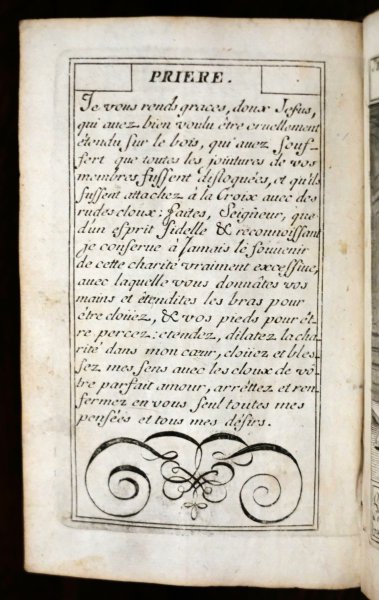 PRIERE.
Je vous rends graces, doux Jesus,
qui avez bien voulu être cruellement
étendu sur le bois, qui avez souf-
fert que toutes les jointures de vos
membres fussent disloquées, et qu'ils
fussent attachez à la Croix avec des
rudes cloux: Faites, Seigneur, que
d'un esprit fidelle & reconnoissant
je conserve à Jamais le souvenir
de cette charité vraiment excessive,
avec laquelle vous donnâtes vos
mains et étendites les bras pour
être cloüez, & vos pieds pour êt-
re percez: etendez, dilatez la cha-
rité dans mon cœur, cloüez et bles-
sez mes sens avec les cloux de vô-
tre parfait amour, arrêttez et ren-
fermez en vous seul toutes mes
pensées et tous mes désirs.